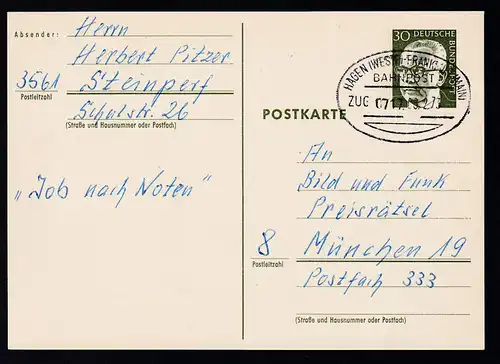 Absender:
Herrn
Herbert Pitzer
3561
Steinperf
Postleitzahl
Schulstr. 26
(Straße und Hausnummer oder Postfach)
„Job nach Noten"
30 DEUTSCHE BUNDESPOST
HAGEN (WESTF)-FRANKFURT (MAIN)
BAHNPOST
ZUG
POSTKARTE
An
Bild und Funk
Preisrätsel
8
München 19
Postleitzahl
Postfach 333
(Straße und Hausnummer oder Postfach)